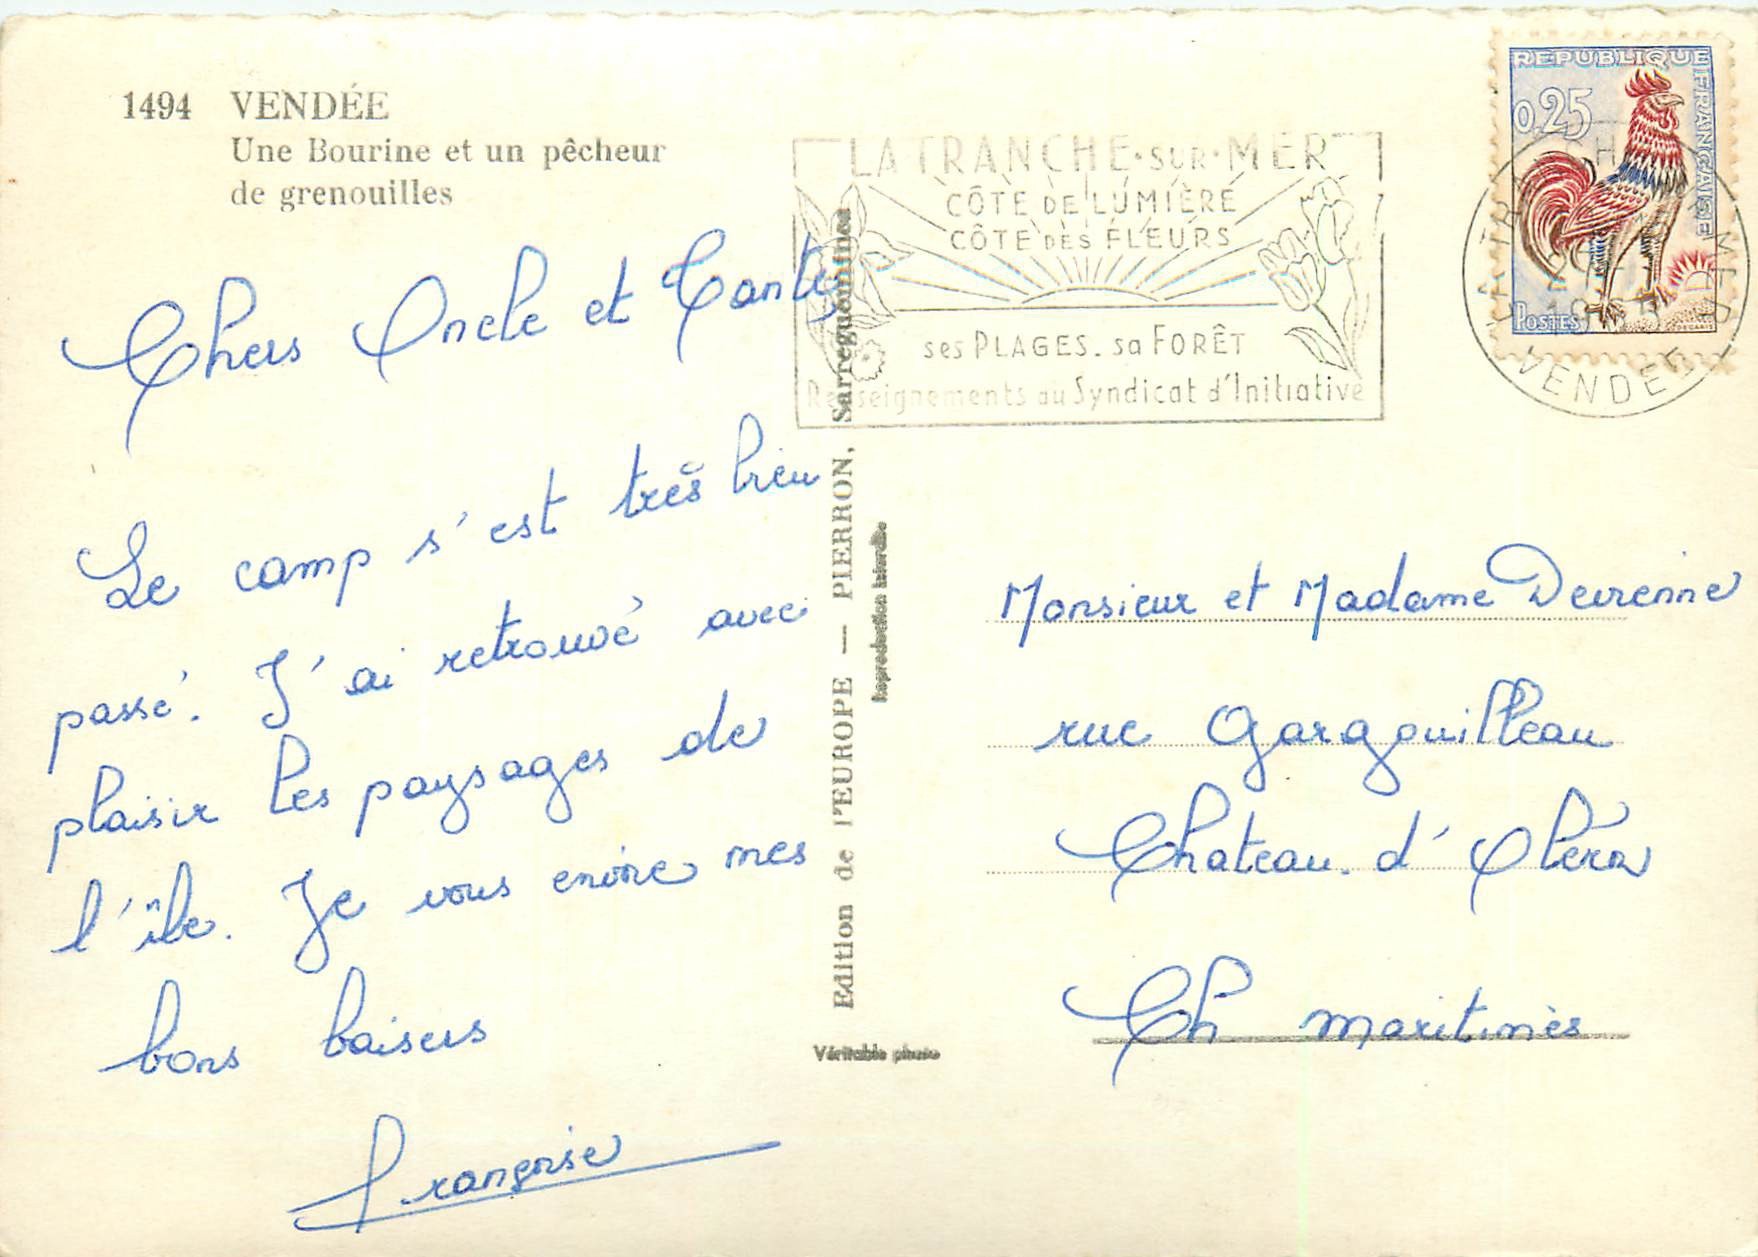 1494 VENDÉE
Une Bourine et un pêcheur
de grenouilles
Chers Oncle et Tante
Le camp s'est très bien
passé. J'ai retrouvé avec
plaisir les paysages de
l'île. Je vous envoie mes
bons baisers
Françoise
Edition de l'EUROPE — PIERRON, Sarreguemines
Reproduction interdite
Véritable photo
LA TRANCHE·SUR·MER
CÔTE DE LUMIÈRE
CÔTE DES FLEURS
ses PLAGES. sa FORÊT
Renseignements au Syndicat d'Initiative
REPUBLIQUE FRANÇAISE
0,25
POSTES
LA TRANCHE SUR MER
VENDEE
Monsieur et Madame Devrenne
rue Gargouilleau
Chateau. d'Oléron
Ch maritimes